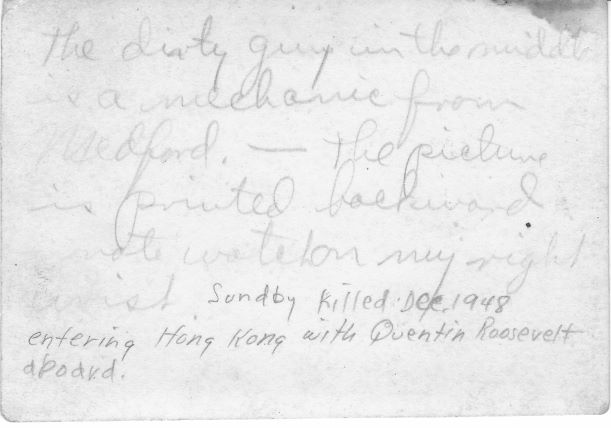 The dirty guy in the middle
is a mechanic from
Medford. — The picture
is printed backward
note watch on my right
wrist
Sundby killed Dec. 1948
entering Hong Kong with Quentin Roosevelt
aboard.